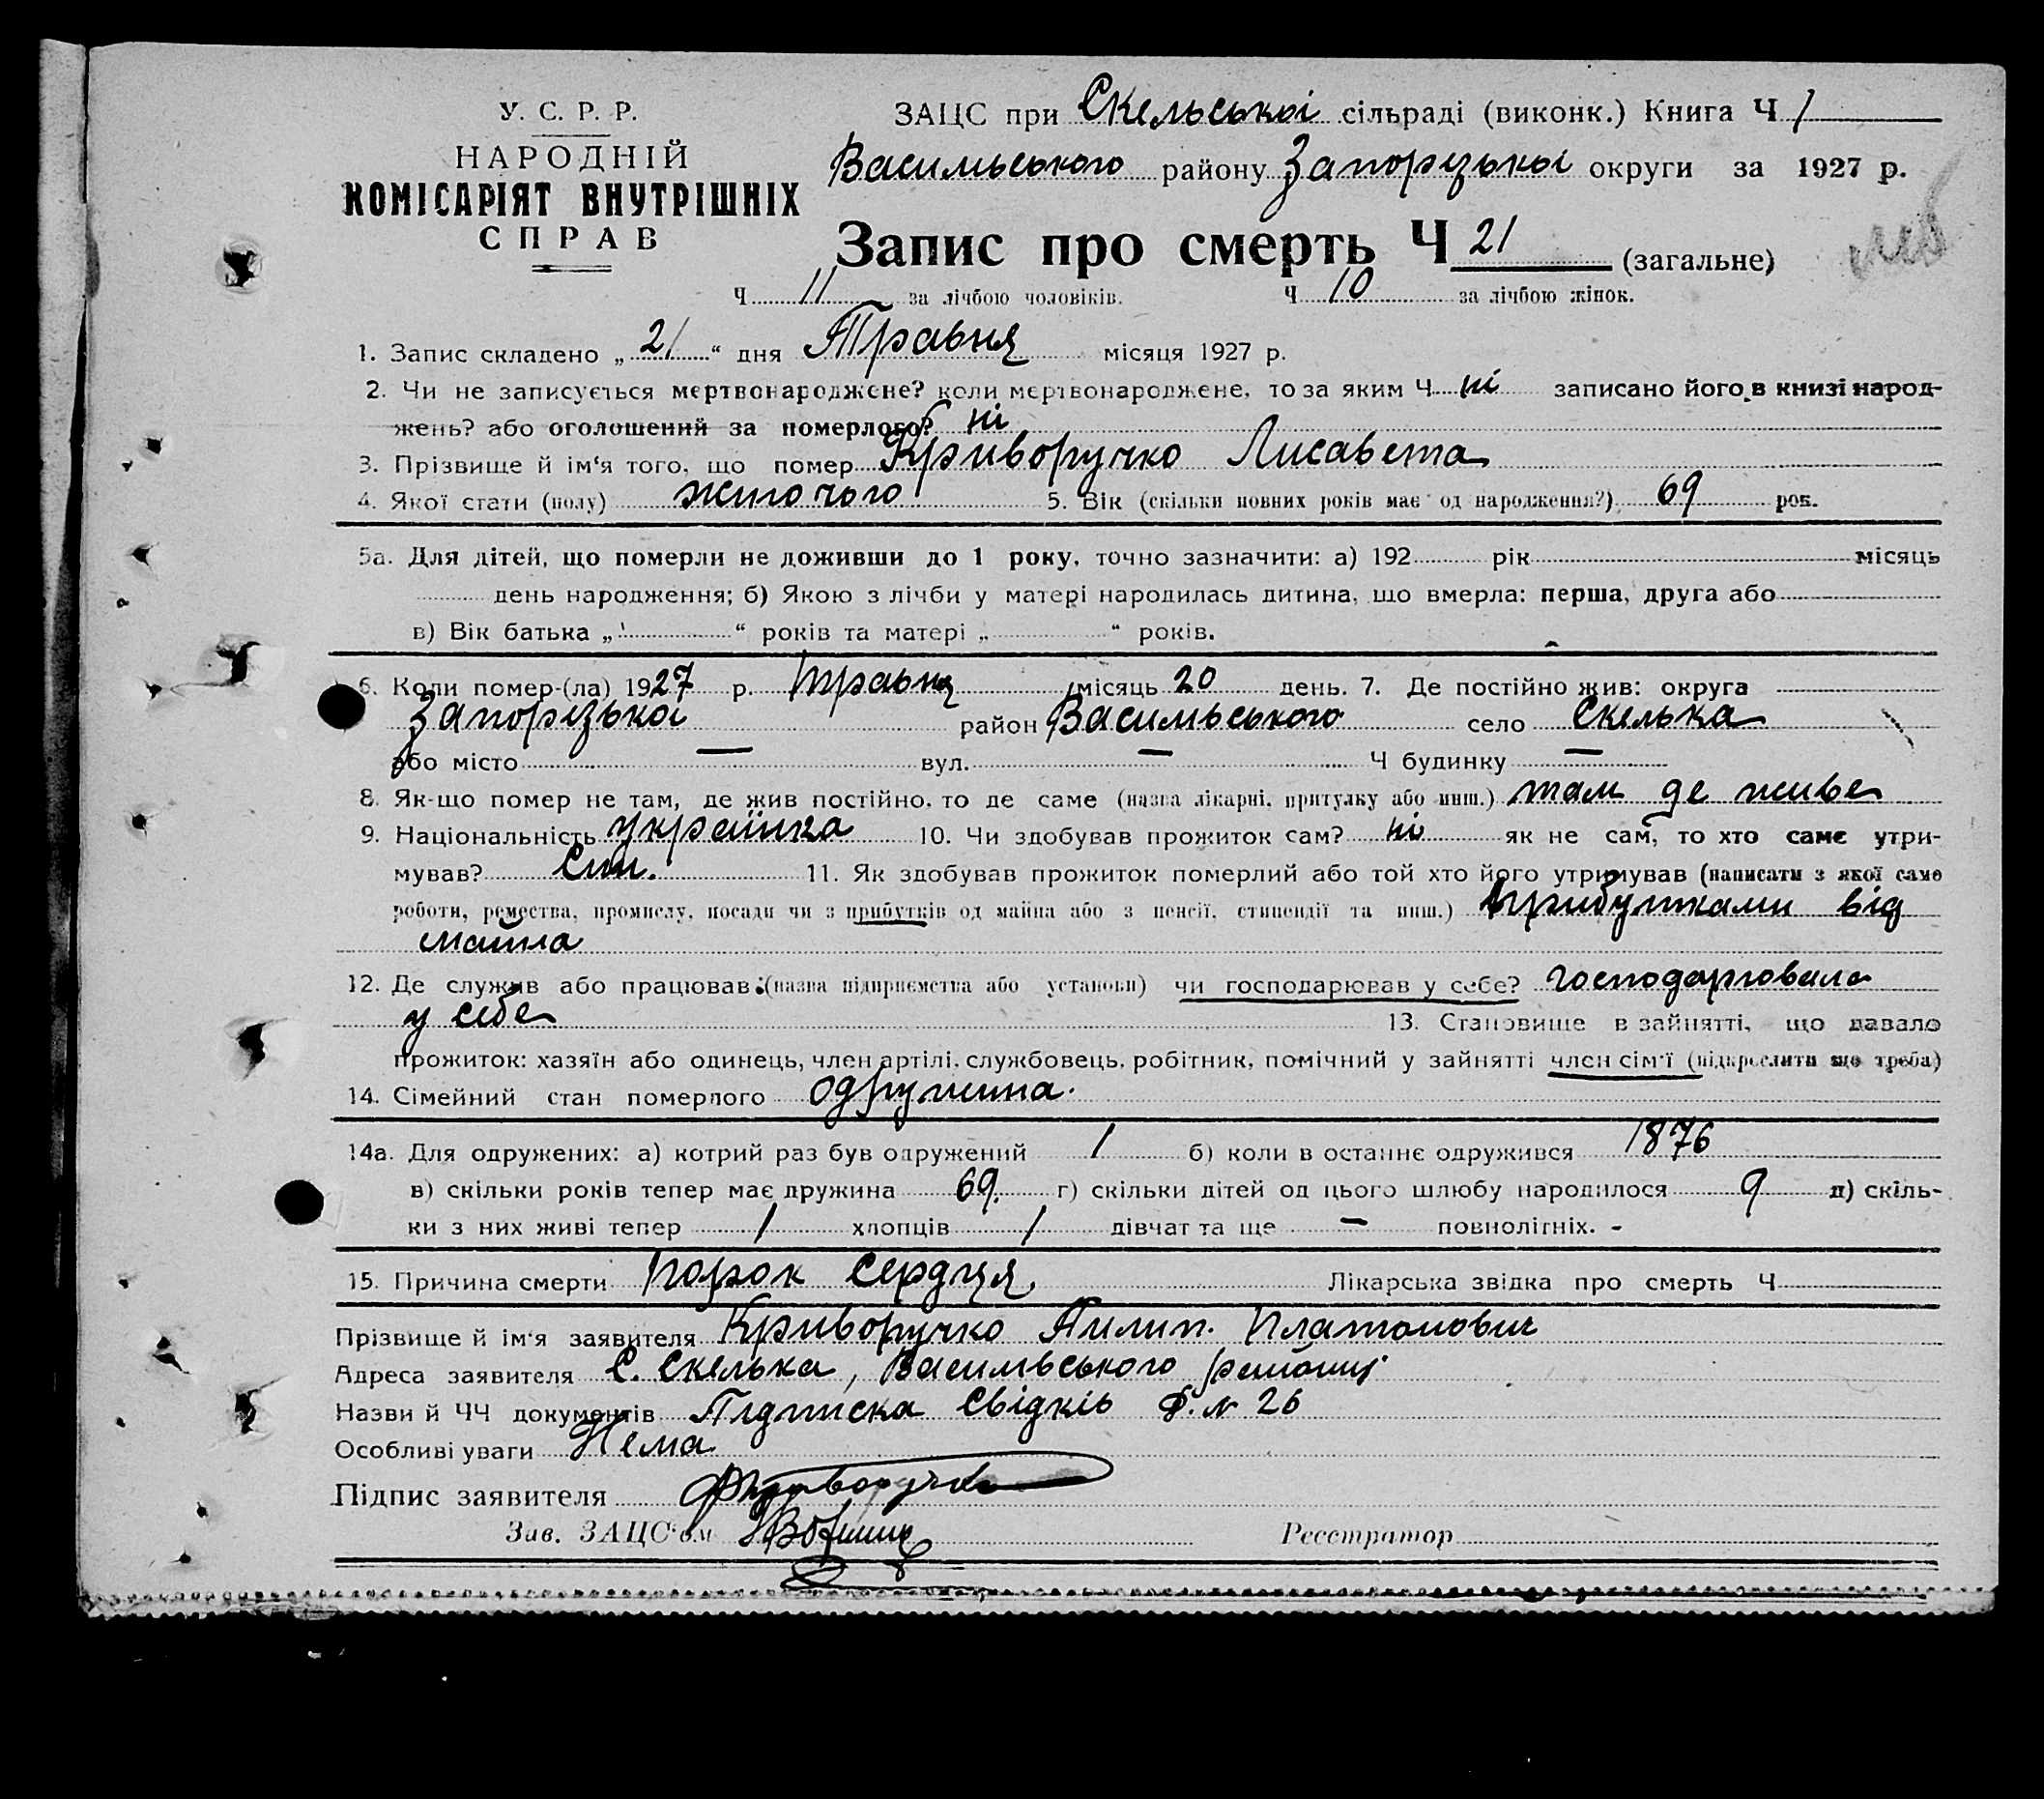 У. С. Р. Р.
НАРОДНІЙ
КОМІСАРІЯТ ВНУТРІШНІХ
СПРАВ
ЗАЦС при Скельськоі сільраді (виконк.) Книга Ч 1
Васильського району Запорізькоі округи за 1927 р.
Запис про смерть Ч 21 (загальне)
Ч 11 за лічбою чоловіків. Ч 10 за лічбою жінок.
1. Запис складено „ 21 “ дня Травня місяця 1927 р.
2. Чи не записується мертвонароджене? коли мертвонароджене, то за яким Ч ні записано його в книзі народ-
жень? або оголошений за померлого? ні
3. Прізвище й ім‘я того, що помер Криворучко Лисавета
4. Якої стати (полу) жіночого 5. Вік (скільки повних років має од народження?) 69 рок.
5а. Для дітей, що померли не доживши до 1 року, точно зазначити: а) 192 рік місяць
день народження; б) Якою з лічби у матері народилась дитина, що вмерла: перша, друга або
в) Вік батька „ “ років та матері „ “ років.
6. Коли помер-(ла) 1927 р. травня місяць 20 день. 7. Де постійно жив: округа
Запорізькоі район Васильського село Скелька
або місто — вул. — Ч будинку —
8. Як-що помер не там, де жив постійно, то де саме (назва лікарні, притулку або инш.) там де живе
9. Національність українка 10. Чи здобував прожиток сам? ні як не сам, то хто саме утри-
мував? син. 11. Як здобував прожиток померлий або той хто його утримував (написати з якої саме
роботи, ремества, промислу, посади чи з прибутків од майна або з пенсії, стипендії та инш.) прибутками від
майна
12. Де служив або працював: (назва підприємства або установи) чи господарював у себе? господарювала
у себе 13. Становище в зайнятті, що давало
прожиток: хазяїн або одинець, член артілі, службовець, робітник, помічний у зайнятті член сім‘ї (підкреслити що треба)
14. Сімейний стан померлого одружина.
14а. Для одружених: а) котрий раз був одружений 1 б) коли в останнє одружився 1876
в) скільки років тепер має дружина 69. г) скільки дітей од цього шлюбу народилося 9 д) скіль-
ки з них живі тепер 1 хлопців 1 дівчат та ще — повнолітніх. -
15. Причина смерти порок сердця. Лікарська звідка про смерть Ч
Прізвище й ім‘я заявителя Криворучко Пилип. Платонович
Адреса заявителя с. Скелька, Васильського району
Назви й ЧЧ документів Підписка свідків Ф. № 26
Особливі уваги Нема
Підпис заявителя Ф Криворучко
Зав. ЗАЦС‘ом Реєстратор